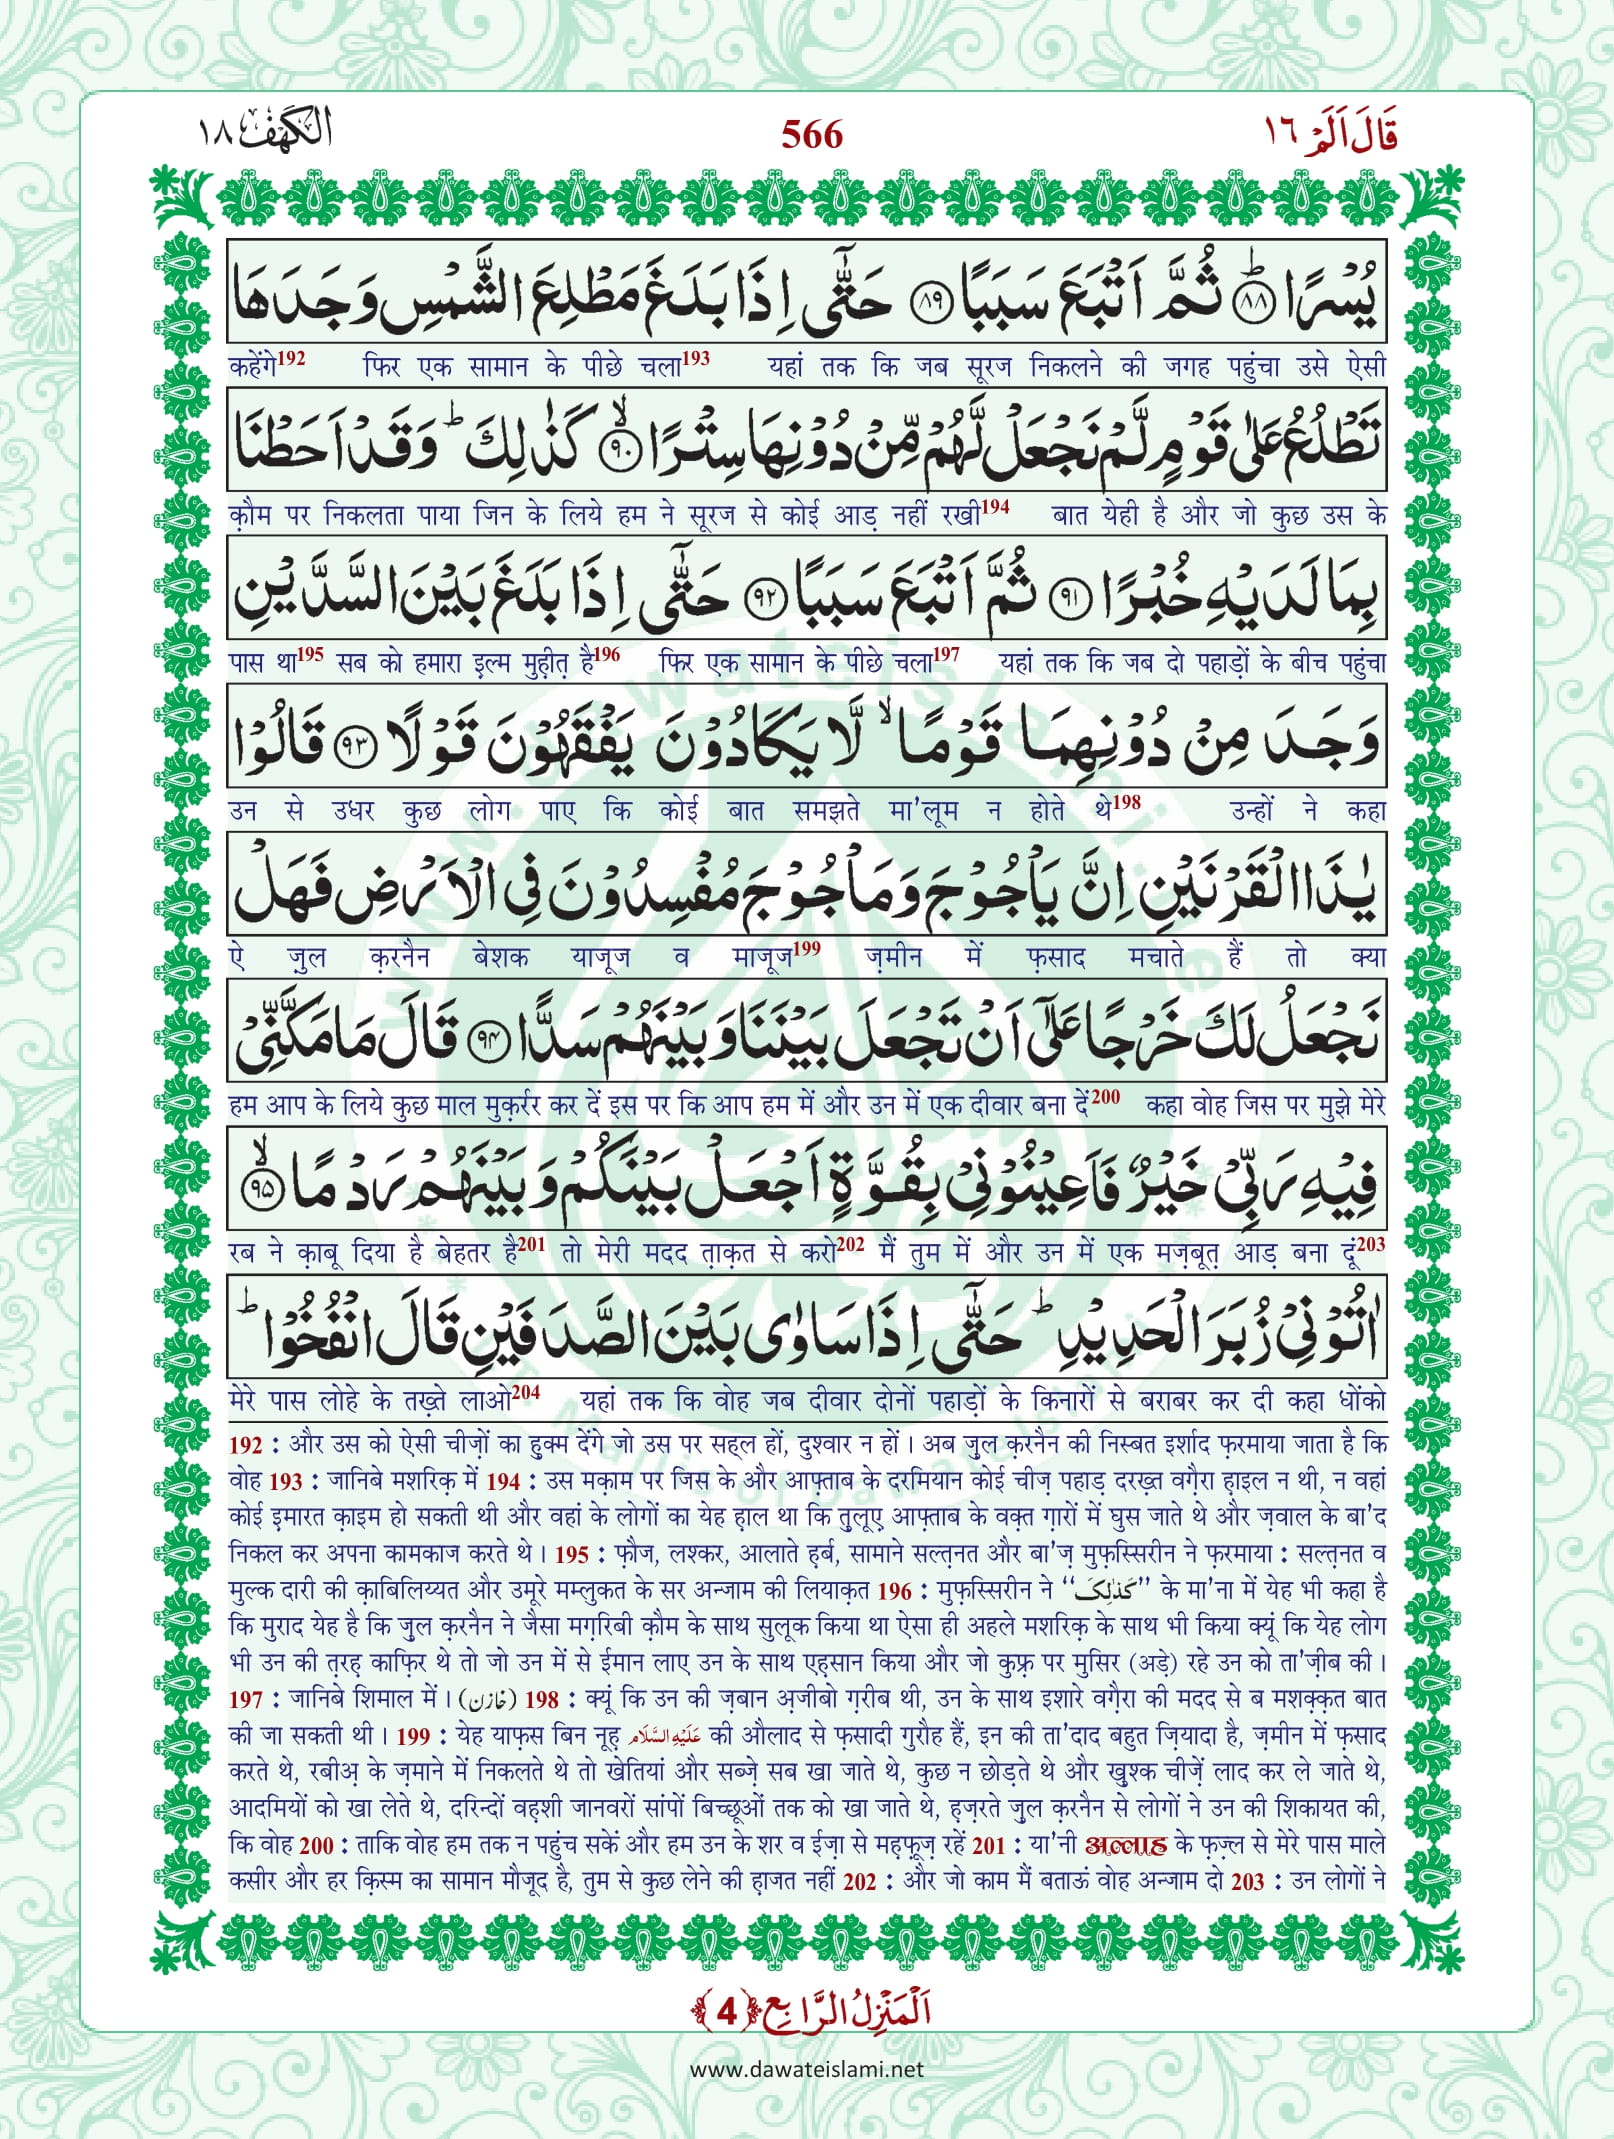 الکهف ١٨
566
قَالَ اَلَمْ ١٦
یُسْرًا ؕ﴿۸۸﴾ ثُمَّ اَتْبَعَ سَبَبًا ﴿۸۹﴾ حَتّٰۤی اِذَا بَلَغَ مَطْلِعَ الشَّمْسِ وَجَدَهَا
कहेंगे192 फिर एक सामान के पीछे चला193 यहां तक कि जब सूरज निकलने की जगह पहुंचा उसे ऐसी
تَطْلُعُ عَلٰی قَوْمٍ لَّمْ نَجْعَلْ لَّهُمْ مِّنْ دُوْنِهَا سِتْرًا ﴿ۙ۹۰﴾ كَذٰلِكَ ؕ وَقَدْ اَحَطْنَا
क़ौम पर निकलता पाया जिन के लिये हम ने सूरज से कोई आड़ नहीं रखी194 बात येही है और जो कुछ उस के
بِمَا لَدَیْهِ خُبْرًا ﴿۹۱﴾ ثُمَّ اَتْبَعَ سَبَبًا ﴿۹۲﴾ حَتّٰۤی اِذَا بَلَغَ بَیْنَ السَّدَّیْنِ
पास था195 सब को हमारा इल्म मुह़ीत़ है196 फिर एक सामान के पीछे चला197 यहां तक कि जब दो पहाड़ों के बीच पहुंचा
وَجَدَ مِنْ دُوْنِهِمَا قَوْمًا ۙ لَّا یَكَادُوْنَ یَفْقَهُوْنَ قَوْلًا ﴿۹۳﴾ قَالُوْا
उन से उधर कुछ लोग पाए कि कोई बात समझते मा'लूम न होते थे198 उन्हों ने कहा
یٰذَا الْقَرْنَیْنِ اِنَّ یَاْجُوْجَ وَمَاْجُوْجَ مُفْسِدُوْنَ فِی الْاَرْضِ فَهَلْ
ऐ ज़ुल क़रनैन बेशक याजूज व माजूज199 ज़मीन में फ़साद मचाते हैं तो क्या
نَجْعَلُ لَكَ خَرْجًا عَلٰۤی اَنْ تَجْعَلَ بَیْنَنَا وَبَیْنَهُمْ سَدًّا ﴿۹۴﴾ قَالَ مَا مَكَّنِّیْ
हम आप के लिये कुछ माल मुक़र्रर कर दें इस पर कि आप हम में और उन में एक दीवार बना दें200 कहा वोह जिस पर मुझे मेरे
فِیْهِ رَبِّیْ خَیْرٌ فَاَعِیْنُوْنِیْ بِقُوَّةٍ اَجْعَلْ بَیْنَكُمْ وَبَیْنَهُمْ رَدْمًا ﴿ۙ۹۵﴾
रब ने क़ाबू दिया है बेहतर है201 तो मेरी मदद त़ाक़त से करो202 मैं तुम में और उन में एक मज़बूत़ आड़ बना दूं203
اٰتُوْنِیْ زُبَرَ الْحَدِیْدِ ؕ حَتّٰۤی اِذَا سَاوٰی بَیْنَ الصَّدَفَیْنِ قَالَ انْفُخُوْا ؕ
मेरे पास लोहे के तख़्ते लाओ204 यहां तक कि वोह जब दीवार दोनों पहाड़ों के किनारों से बराबर कर दी कहा धोंको
192 : और उस को ऐसी चीज़ों का ह़ुक्म देंगे जो उस पर सह्ल हों, दुश्वार न हों । अब ज़ुल क़रनैन की निस्बत इर्शाद फ़रमाया जाता है कि
वोह 193 : जानिबे मशरिक़ में 194 : उस मक़ाम पर जिस के और आफ़्ताब के दरमियान कोई चीज़ पहाड़ दरख़्त वग़ैरा ह़ाइल न थी, न वहां
कोई इमारत क़ाइम हो सकती थी और वहां के लोगों का येह ह़ाल था कि त़ुलूए आफ़्ताब के वक़्त ग़ारों में घुस जाते थे और ज़वाल के बा'द
निकल कर अपना कामकाज करते थे । 195 : फ़ौज, लश्कर, आलाते ह़र्ब, सामाने सल्त़नत और बा'ज़ मुफ़स्सिरीन ने फ़रमाया : सल्त़नत व
मुल्क दारी की क़ाबिलिय्यत और उमूरे मम्लुकत के सर अन्जाम की लियाक़त 196 : मुफ़स्सिरीन ने ‘‘كَذٰلِكَ’’ के मा'ना में येह भी कहा है
कि मुराद येह है कि ज़ुल क़रनैन ने जैसा मग़रिबी क़ौम के साथ सुलूक किया था ऐसा ही अहले मशरिक़ के साथ भी किया क्यूं कि येह लोग
भी उन की त़रह़ काफ़िर थे तो जो उन में से ईमान लाए उन के साथ एह़सान किया और जो कुफ़्र पर मुसिर (अड़े) रहे उन को ता'ज़ीब की ।
197 : जानिबे शिमाल में । (خازن) 198 : क्यूं कि उन की ज़बान अ़जीबो ग़रीब थी, उन के साथ इशारे वग़ैरा की मदद से ब मशक़्क़त बात
की जा सकती थी । 199 : येह याफ़स बिन नूह़ عَلَیْهِ السَّلَام की औलाद से फ़सादी गुरौह हैं, इन की ता'दाद बहुत ज़ियादा है, ज़मीन में फ़साद
करते थे, रबीअ़ के ज़माने में निकलते थे तो खेतियां और सब्ज़े सब खा जाते थे, कुछ न छोड़ते थे और ख़ुश्क चीज़ें लाद कर ले जाते थे,
आदमियों को खा लेते थे, दरिन्दों वह़शी जानवरों सांपों बिच्छूओं तक को खा जाते थे, ह़ज़रते ज़ुल क़रनैन से लोगों ने उन की शिकायत की,
कि वोह 200 : ताकि वोह हम तक न पहुंच सकें और हम उन के शर व ईज़ा से मह़फ़ूज़ रहें 201 : या'नी अल्लाह के फ़ज़्ल से मेरे पास माले
कसीर और हर क़िस्म का सामान मौजूद है, तुम से कुछ लेने की ह़ाजत नहीं 202 : और जो काम मैं बताऊं वोह अन्जाम दो 203 : उन लोगों ने
اَلْمَنْزِلُ الرَّابِع ﴿4﴾
www.dawateislami.net